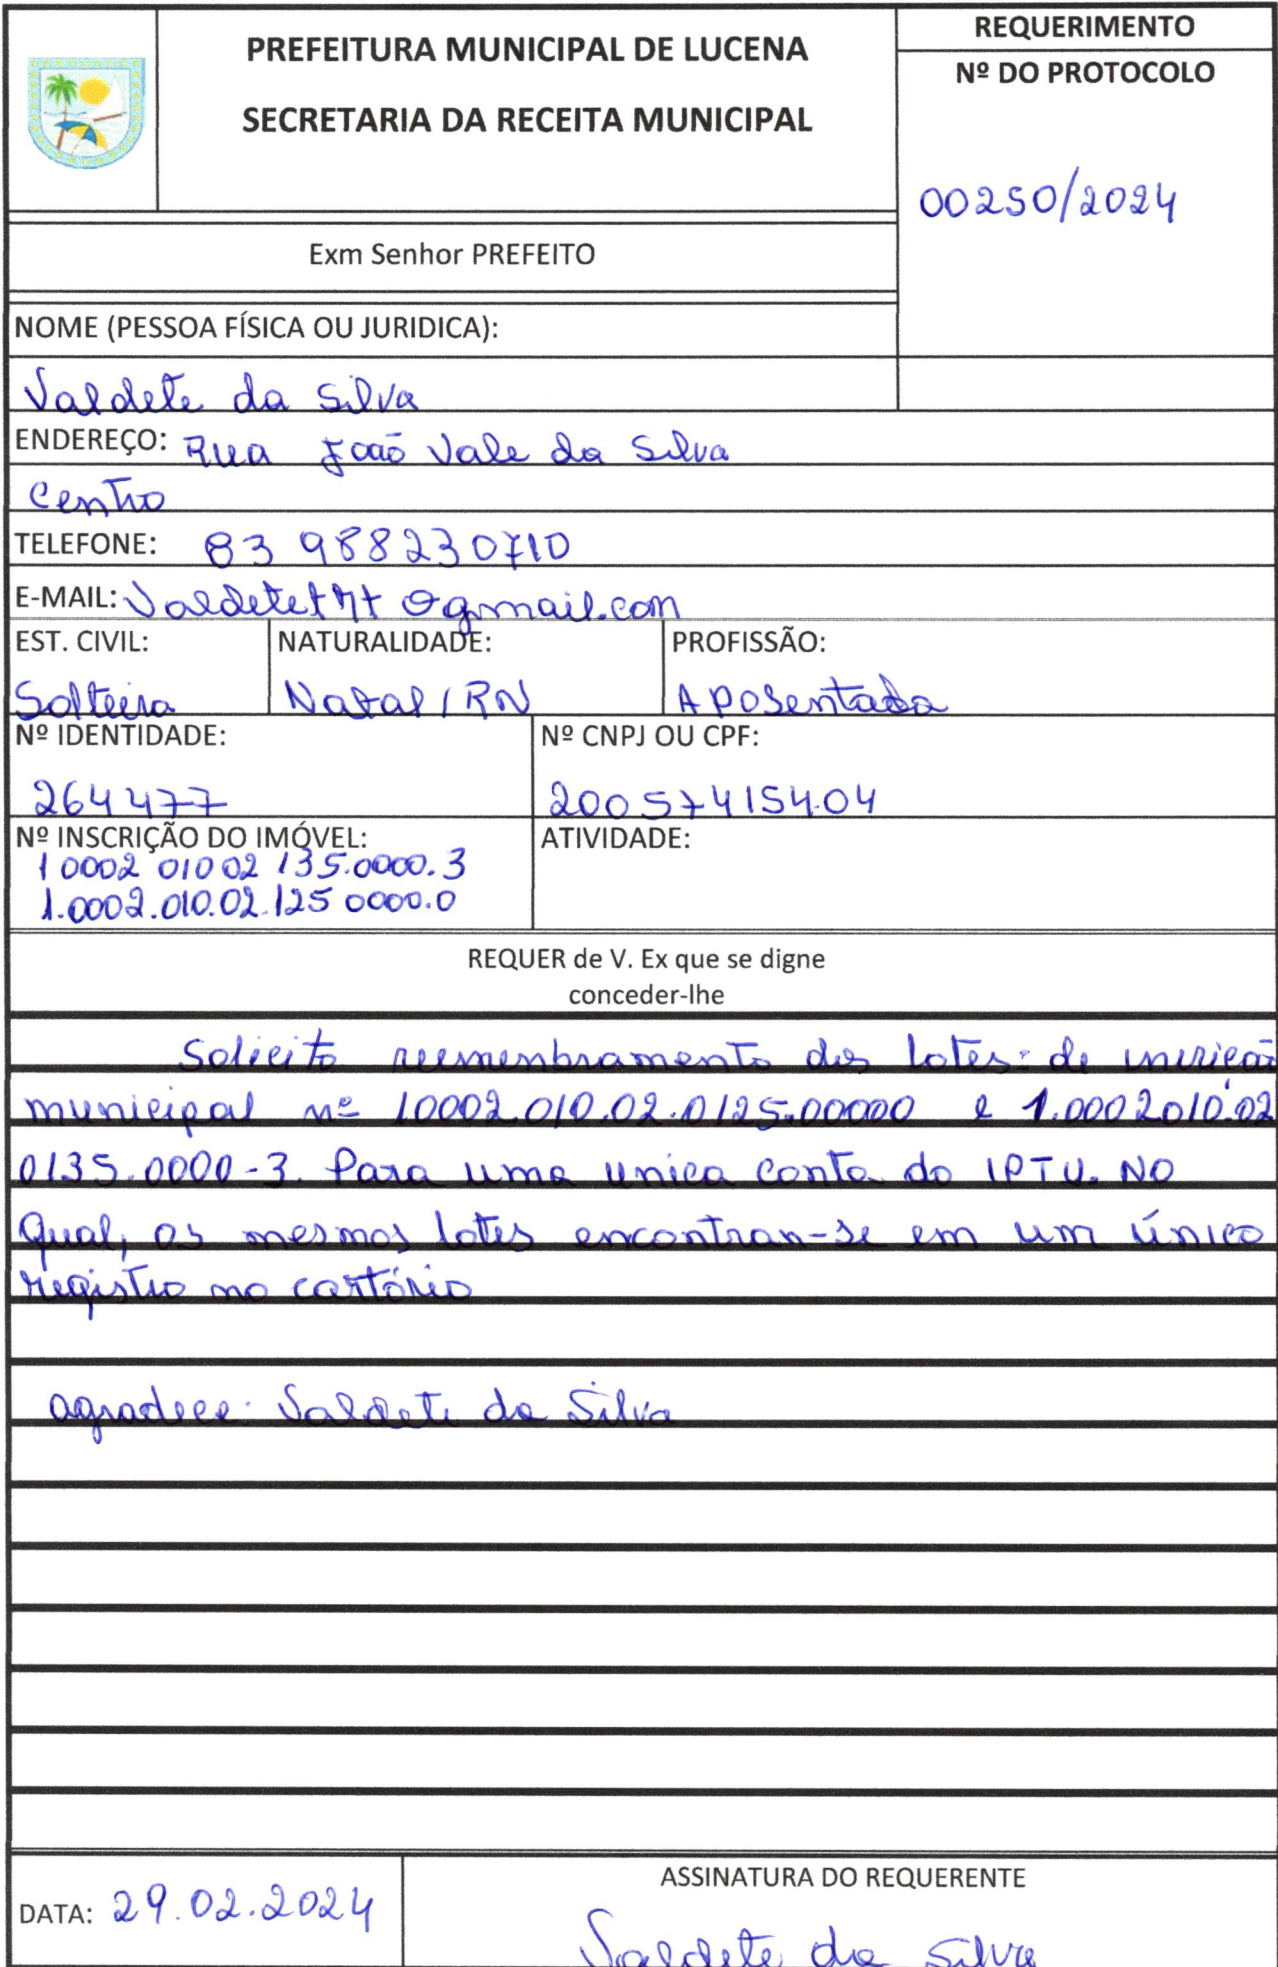 PREFEITURA MUNICIPAL DE LUCENA
SECRETARIA DA RECEITA MUNICIPAL
REQUERIMENTO
Nº DO PROTOCOLO
00250/2024
Exm Senhor PREFEITO
NOME (PESSOA FÍSICA OU JURIDICA):
Valdete da Silva
ENDEREÇO: Rua João Vale da Silva
Centro
TELEFONE: 83 988230710
E-MAIL: @gmail.com
EST. CIVIL: NATURALIDADE: PROFISSÃO:
Solteira Natal/RN Aposentada
Nº IDENTIDADE: Nº CNPJ OU CPF:
264477 200574154.04
Nº INSCRIÇÃO DO IMÓVEL: ATIVIDADE:
1 0002 010 02 135.0000.3
1.0002.010.02.125 0000.0
REQUER de V. Ex que se digne
conceder-lhe
Solicito dos lotes: de
municipal nº 10002.010.02.0125.00000 e 1.0002010.02
0135.0000-3. Para uma unica conta do IPTU. NO
Qual, os mesmos lotes encontran-se em um único
registro no cartório
agradece: Valdete da Silva
DATA: 29.02.2024
ASSINATURA DO REQUERENTE
Valdete da Silva